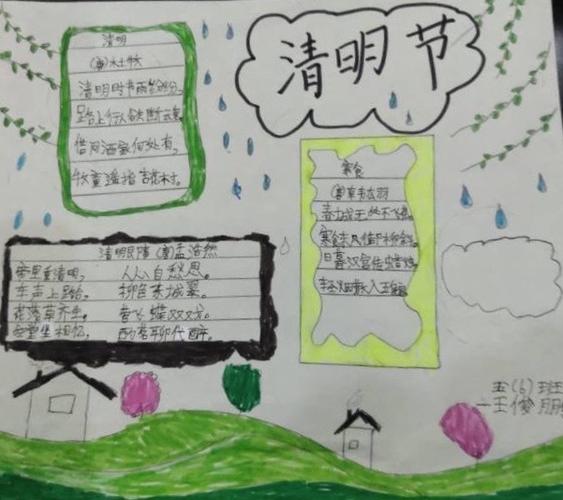 清明节
清明
(唐)杜牧
清明时节雨纷纷,
路上行人欲断魂。
借问酒家何处有,
牧童遥指杏花村。
寒食
(唐)
春城无处不飞花。
寒食东风御柳斜。
日暮汉宫传蜡烛,
轻烟散入五侯家。
清明即事 (唐)孟浩然
帝里重清明, 人心自愁思。
车声上路合, 柳色东城翠。
花落草齐生, 莺飞蝶双戏。
空堂坐相忆, 酌茗聊代醉。
五(6)班
王俊朋